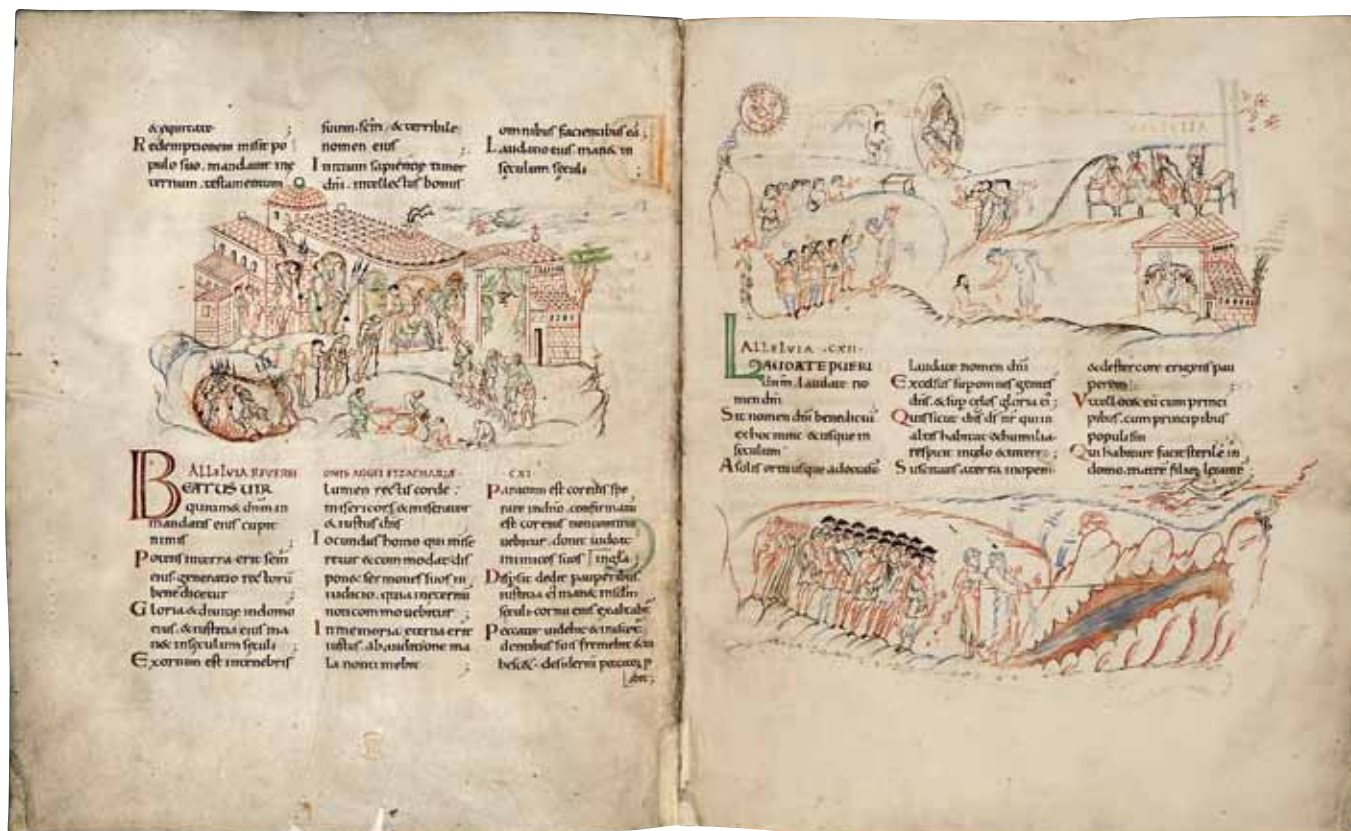 & equitate ;
Redemptionem misit po
pulo suo. mandauit in e
ternum. testamentum
suum. scm. & terribile
nomen eius ;
Initium sapientię timor
dni. intellectus bonus
omnibus facientibus eā ;
Laudatio eius man& in
sęculum sęculi ;
ALLELVIA REVERSI
BEATUS UIR
qui tim& dnm in
mandatis eius cupit
nimis ;
Potens in terra erit sem
eius. generatio rectorū
benedicetur ;
Gloria & diuitię in domo
eius. & iustitia eius ma
n& in sęculum sęculi ;
Exortum est in tenebris
ONIS AGGEI ET ZACHARIÆ
lumen rectis corde ;
misericors & miserator
& iustus dns ;
Iocundus homo qui mise
retur & commodat. dis
pon& sermones suos in
iudicio. quia in eternū
non commouebitur ;
In memoria ęterna erit
iustus. ab auditione ma
la non timebit ;
CXI
Paratum est cor eius spe
rare in dno. confirmatū
est cor eius non commo
uebitur. donec uideat
inimicos suos ;
Dispsit dedit pauperibus.
iustitia ei man& in sclm
sculi. cornu eius exaltabit
in gla ;
Peccator uidebit & irascet
dentibus suis frem& & ta
besc&. desideriū peccatorū p
ibit ;
ALLELVIA .CXII.
LAUDATE PUERI
dnm. laudate no
men dni
Sit nomen dni benedictū
ex hoc nunc & usque in
seculum
A solis ortu usque ad occasū
laudate nomen dni
Excelsus sup omnes gentes
dns. & sup celos gloria ei ;
Quis sicut dns ds nr qui in
altis habitat & humilia
respicit in celo & in terra ;
Suscitans a terra inopem
& de stercore erigens pau
perem ;
Ut colloc& eū cum princi
pibus. cum principibus
populi sui
Qui habitare facit sterilē in
domo. matrē filiorū letantē